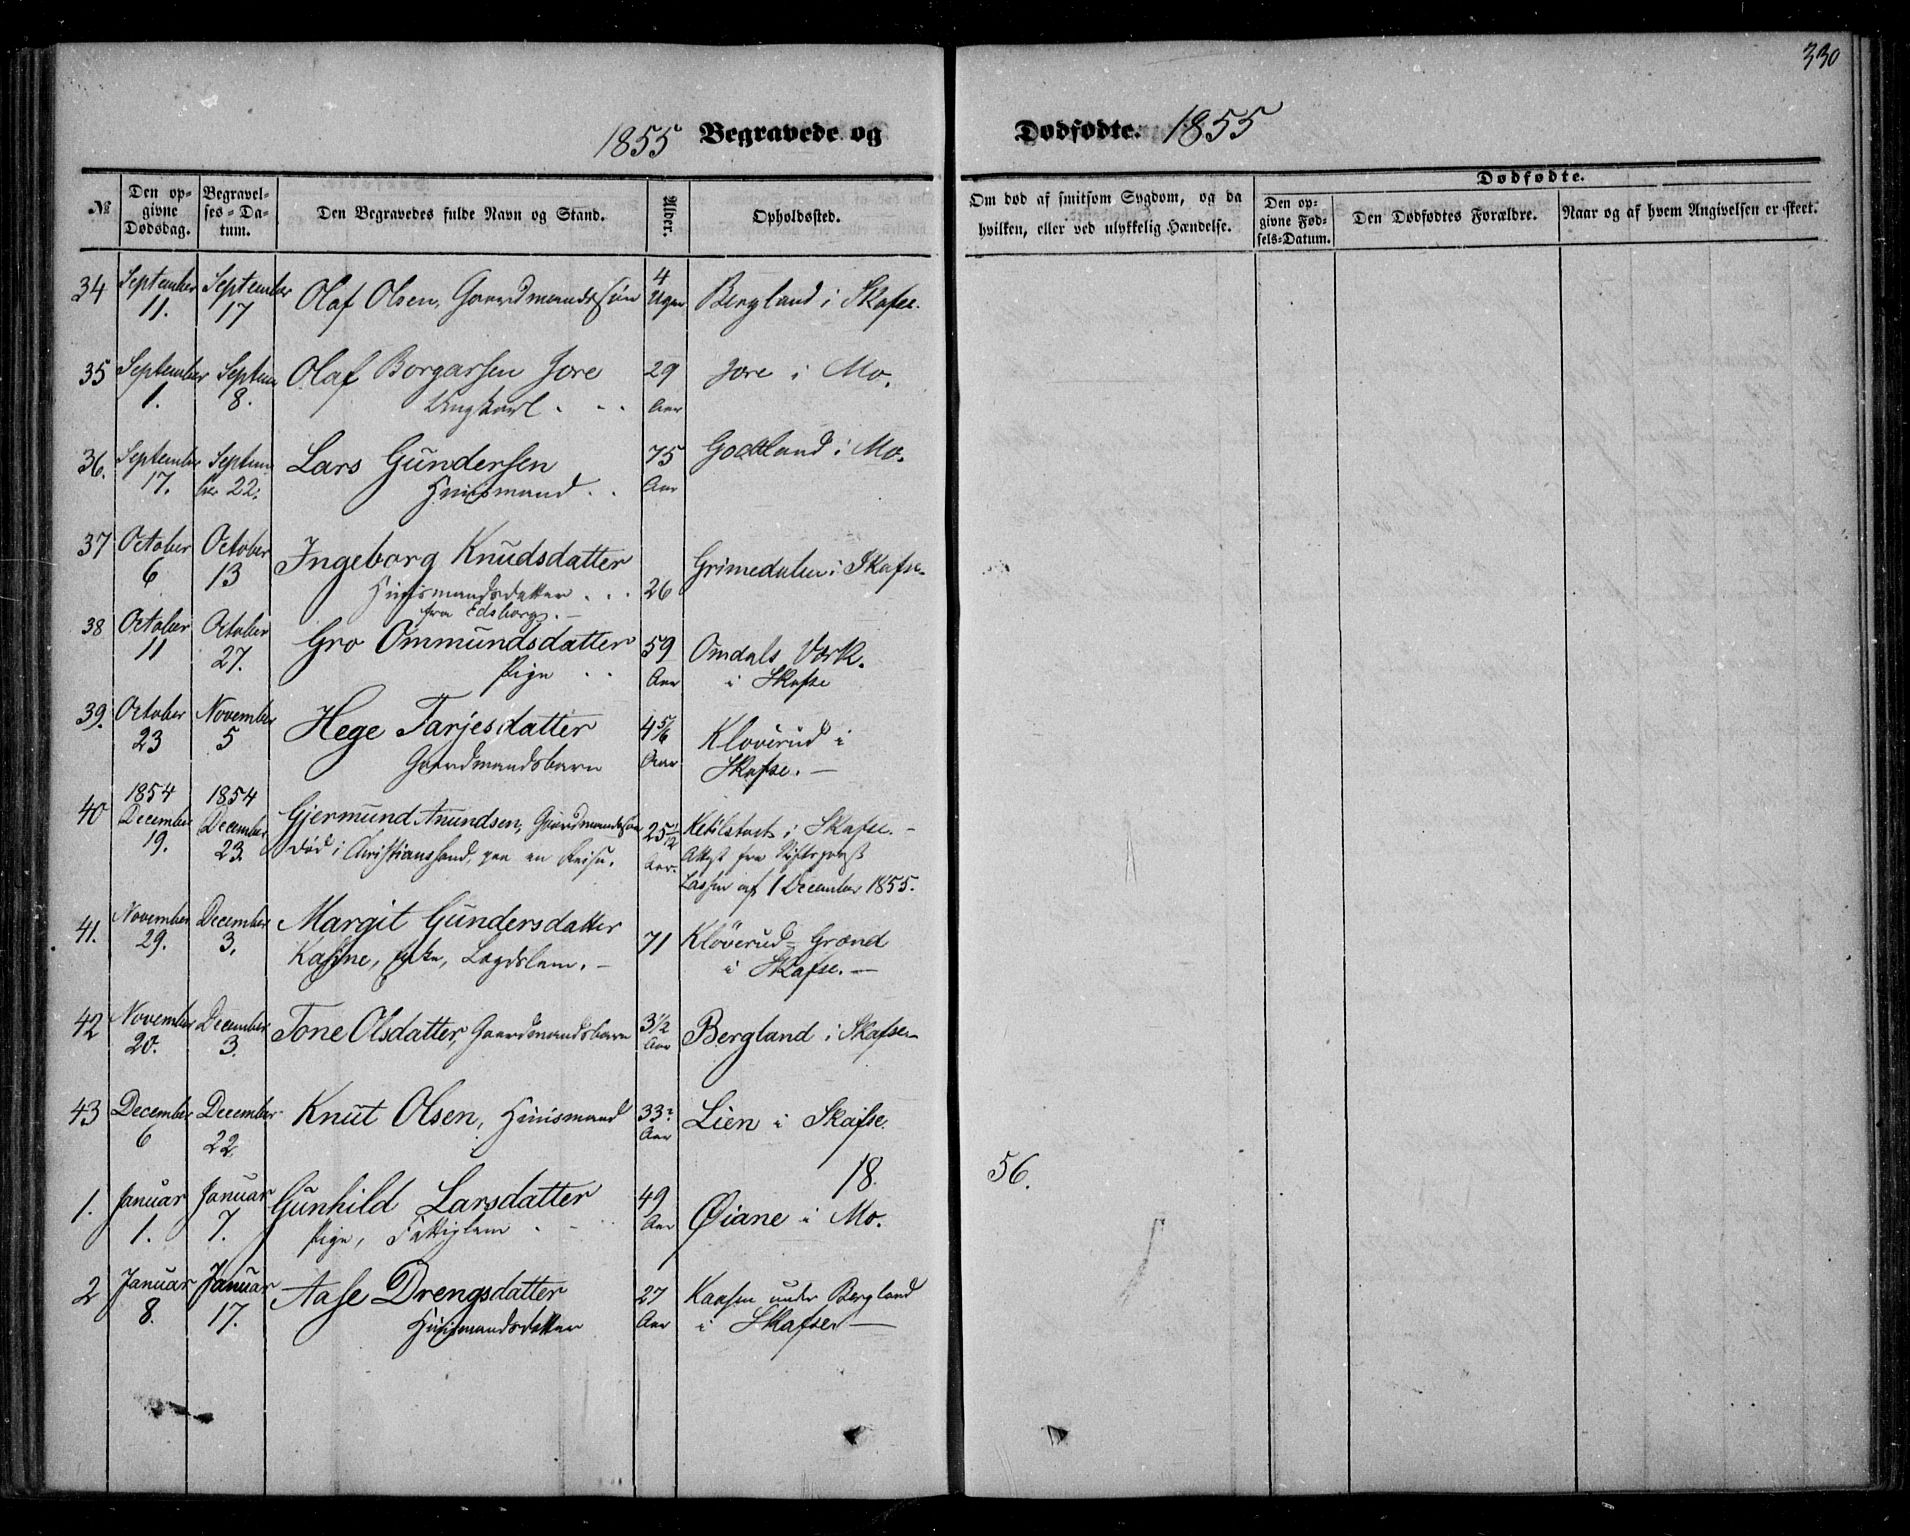 330
1855 Begravede og Dødfødte. 1855
№ Den opgivne Dødsdag. Begravelses-Datum. Den Begravedes fulde Navn og Stand. Alder. Opholdssted.
Om død af smitsom Sygdom, og da hvilken, eller ved ulykkelig Hændelse. Dødfødte. Den opgivne Fødsels-Datum. Den Dødfødtes Forældre. Naar og af hvem Angivelsen er skeet.
34 September 11. September 17 Olaf Olsen, Gaardmandssøn 4 Uger Bergland i Skafse.
35 September 1. Septem 8. Olaf Borgarsen Jore 29 Aar Jore i Mo.
Ungkarl
36. September 17. September 22. Lars Gundersen 75 Aar Godtland i Mo.
Huusmand
37 October 6 October 13 Ingeborg Knudsdatter 26 Grimedalen i Skafse
Huusmandsdatter
fra Edsborg.
38 October 11 October 27. Gro Ommundsdatter 59 Aar Omdals Værk.
Pige i Skafse
39. October 23 November 5 Hege Tarjesdatter 4 5/6 Aar Kloverud i
Gaardmandsbarn Skafse.
40 1854 December 19. 1854 December 23. Gjermund Anundsen, Gaardmandssøn 25 1/2 Aar. Ketilstvet i Skafse.
død i Christianssand, paa en Reise. Attest fra Stiftsprovst
Lassen af 1 December 1855.
41. November 29. December 3. Margit Gundersdatter 71 Kløverud-Grænd
Kasine, Enke, Lægdslem. i Skafse.
42 November 20. December 3. Tone Olsdatter, Gaardmandsbarn 3 1/2 Aar Bergland i Skafse
43 December 6 December 22 Knut Olsen, Huusmand 33 Aar Lien i Skafse.
18 56.
1. Januar 1. Januar 7. Gunhild Larsdatter 49 Aar Øiane i Mo.
Pige, Fattiglem
2 Januar 8. Januar 17. Aase Drengsdatter 27 Aar Kaasen under Bergland
Huusmandsdatter i Skafse